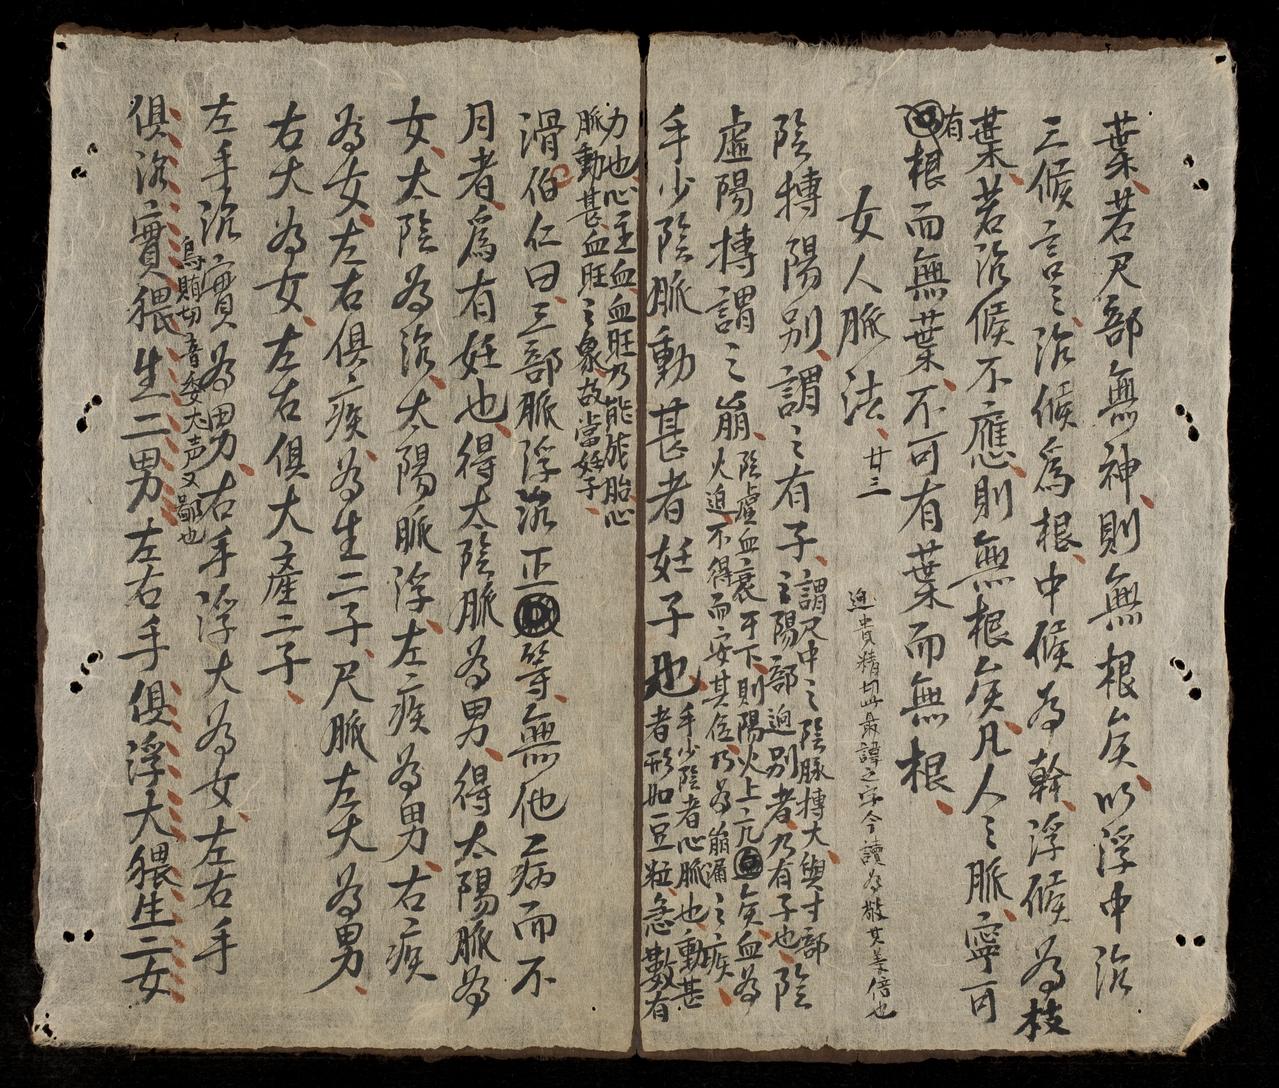 葉若尺部無神則無根矣以浮中沉
三候言之沉候爲根中候為幹浮候為枝
葉若沉候不應則無根矣凡人之脈寧可
有根而無葉不可有葉而無根
女人脈法 廿三
陰搏陽别謂之有子謂尺中之陰脉搏大與寸部
之陽部迥别者乃有子也陰
虛陽搏謂之崩陰虛血衰于下則陽火上亢矣血為
火迫不得而安其位乃為崩漏之疾
手少陰脈動甚者妊子也手少陰者心脈也動甚
者形如豆粒急數有
力也心主血血旺乃能成胎心
脈動甚血旺之象故當妊子
滑伯仁曰三部脈浮沉正等無他病而不
月者爲有妊也得太陰脈為男得太陽脈為
女太陰為沉太陽脈浮左疾為男右疾
為女左右俱疾為生二子尺脈左大為男
右大為女左右俱大產二子
左手沉實為男右手浮大為女左右手
俱沉實猥生二男左右手俱浮大猥生二女
烏賄切音委大声又鄙也